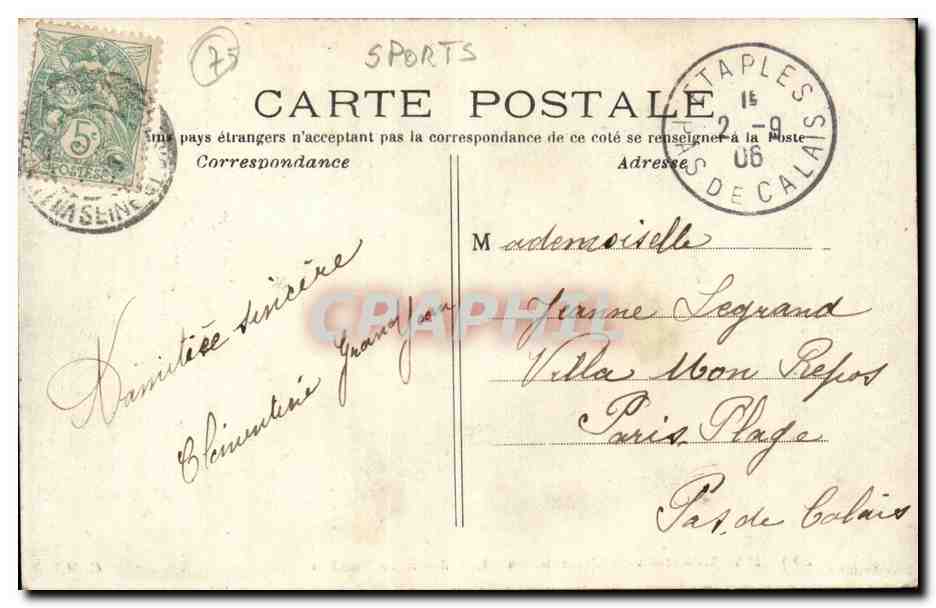 75
SPORTS
5c
POSTES
CARTE POSTALE
ains pays étrangers n'acceptant pas la correspondance de ce coté se renseigner à la Poste
Correspondance
Adresse
ETAPLES
1E
2 -9
06
PAS DE CALAIS
Mademoiselle
Jeanne Legrand
Villa Mon Repos
Paris-Plage
Pas. de Calais
sincère
Clémentine Grandjean
CPAPHIL